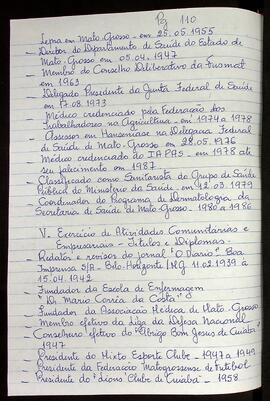 Pg 110
Lepra em Mato Grosso - em 25.05.1955
- Diretor do Departamento de Saúde do Estado de
Mato Grosso em 05.04.1947
- Membro do Conselho Deliberativo da Fusmat
em 1963
- Delegado Presidente da Junta Federal de Saúde
em 17.08.1973
- Médico credenciado pela Federação dos
Trabalhadores na Agricultura - em 1974 a 1978
- Assessor em Hanseníase na Delegacia Federal
de Saúde de Mato Grosso em 28.05.1976
- Médico credenciado do IAPAS - em 1978 até
seu falecimento em 1987
- Classificado como Sanitarista do Grupo de Saúde
Pública do Ministério da Saúde - em 12.03.1979
- Coordenador do Programa de Dermatologia da
Secretaria de Saúde de Mato Grosso - 1980 a 1986
V. Exercício de Atividades Comunitárias e
Empresariais - Títulos e Diplomas.
- Redator e revisor do jornal "O Diário" Boa
Imprensa S/A - Belo Horizonte/MG 11.02.1939 à
15.04.1942
- Fundador da Escola de Enfermagem
"Dr Mario Corrêa da Costa"
- Fundador da Associação Médica de Mato Grosso
- Membro efetivo da Liga da Defesa Nacional
- Conselheiro efetivo do "Abrigo Bom Jesus de Cuiabá"
1947
- Presidente do Mixto Esporte Clube - 1947 a 1949
- Presidente da Federação Matogrossense de Futebol
- Presidente do "Lions Clube de Cuiabá" - 1958